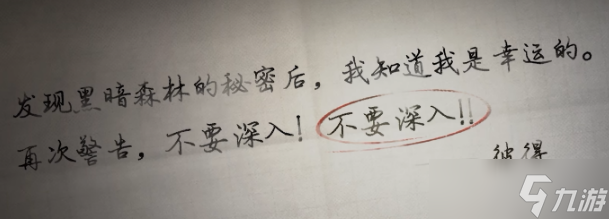 发现黑暗森林的秘密后，我知道我是幸运的。
再次警告，不要深入！不要深入!!
彼得
九游